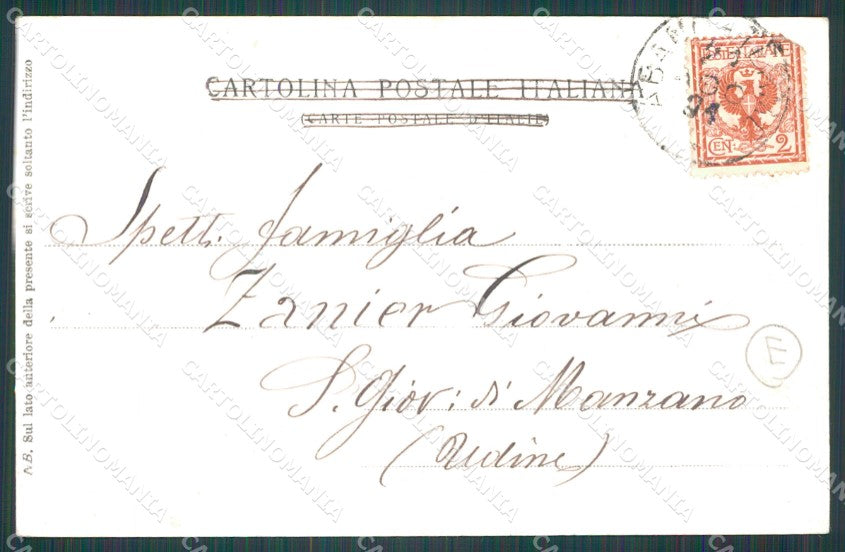 CARTOLINA POSTALE ITALIANA
CARTE POSTALE D'ITALIE
POSTE ITALIANE
CEN. 2
Spett. famiglia
Zanier Giovanni
S. Giov: di Manzano
(Udine)
E
AB. Sul lato anteriore della presente si scrive soltanto l'indirizzo
CARTOLINOMANIA